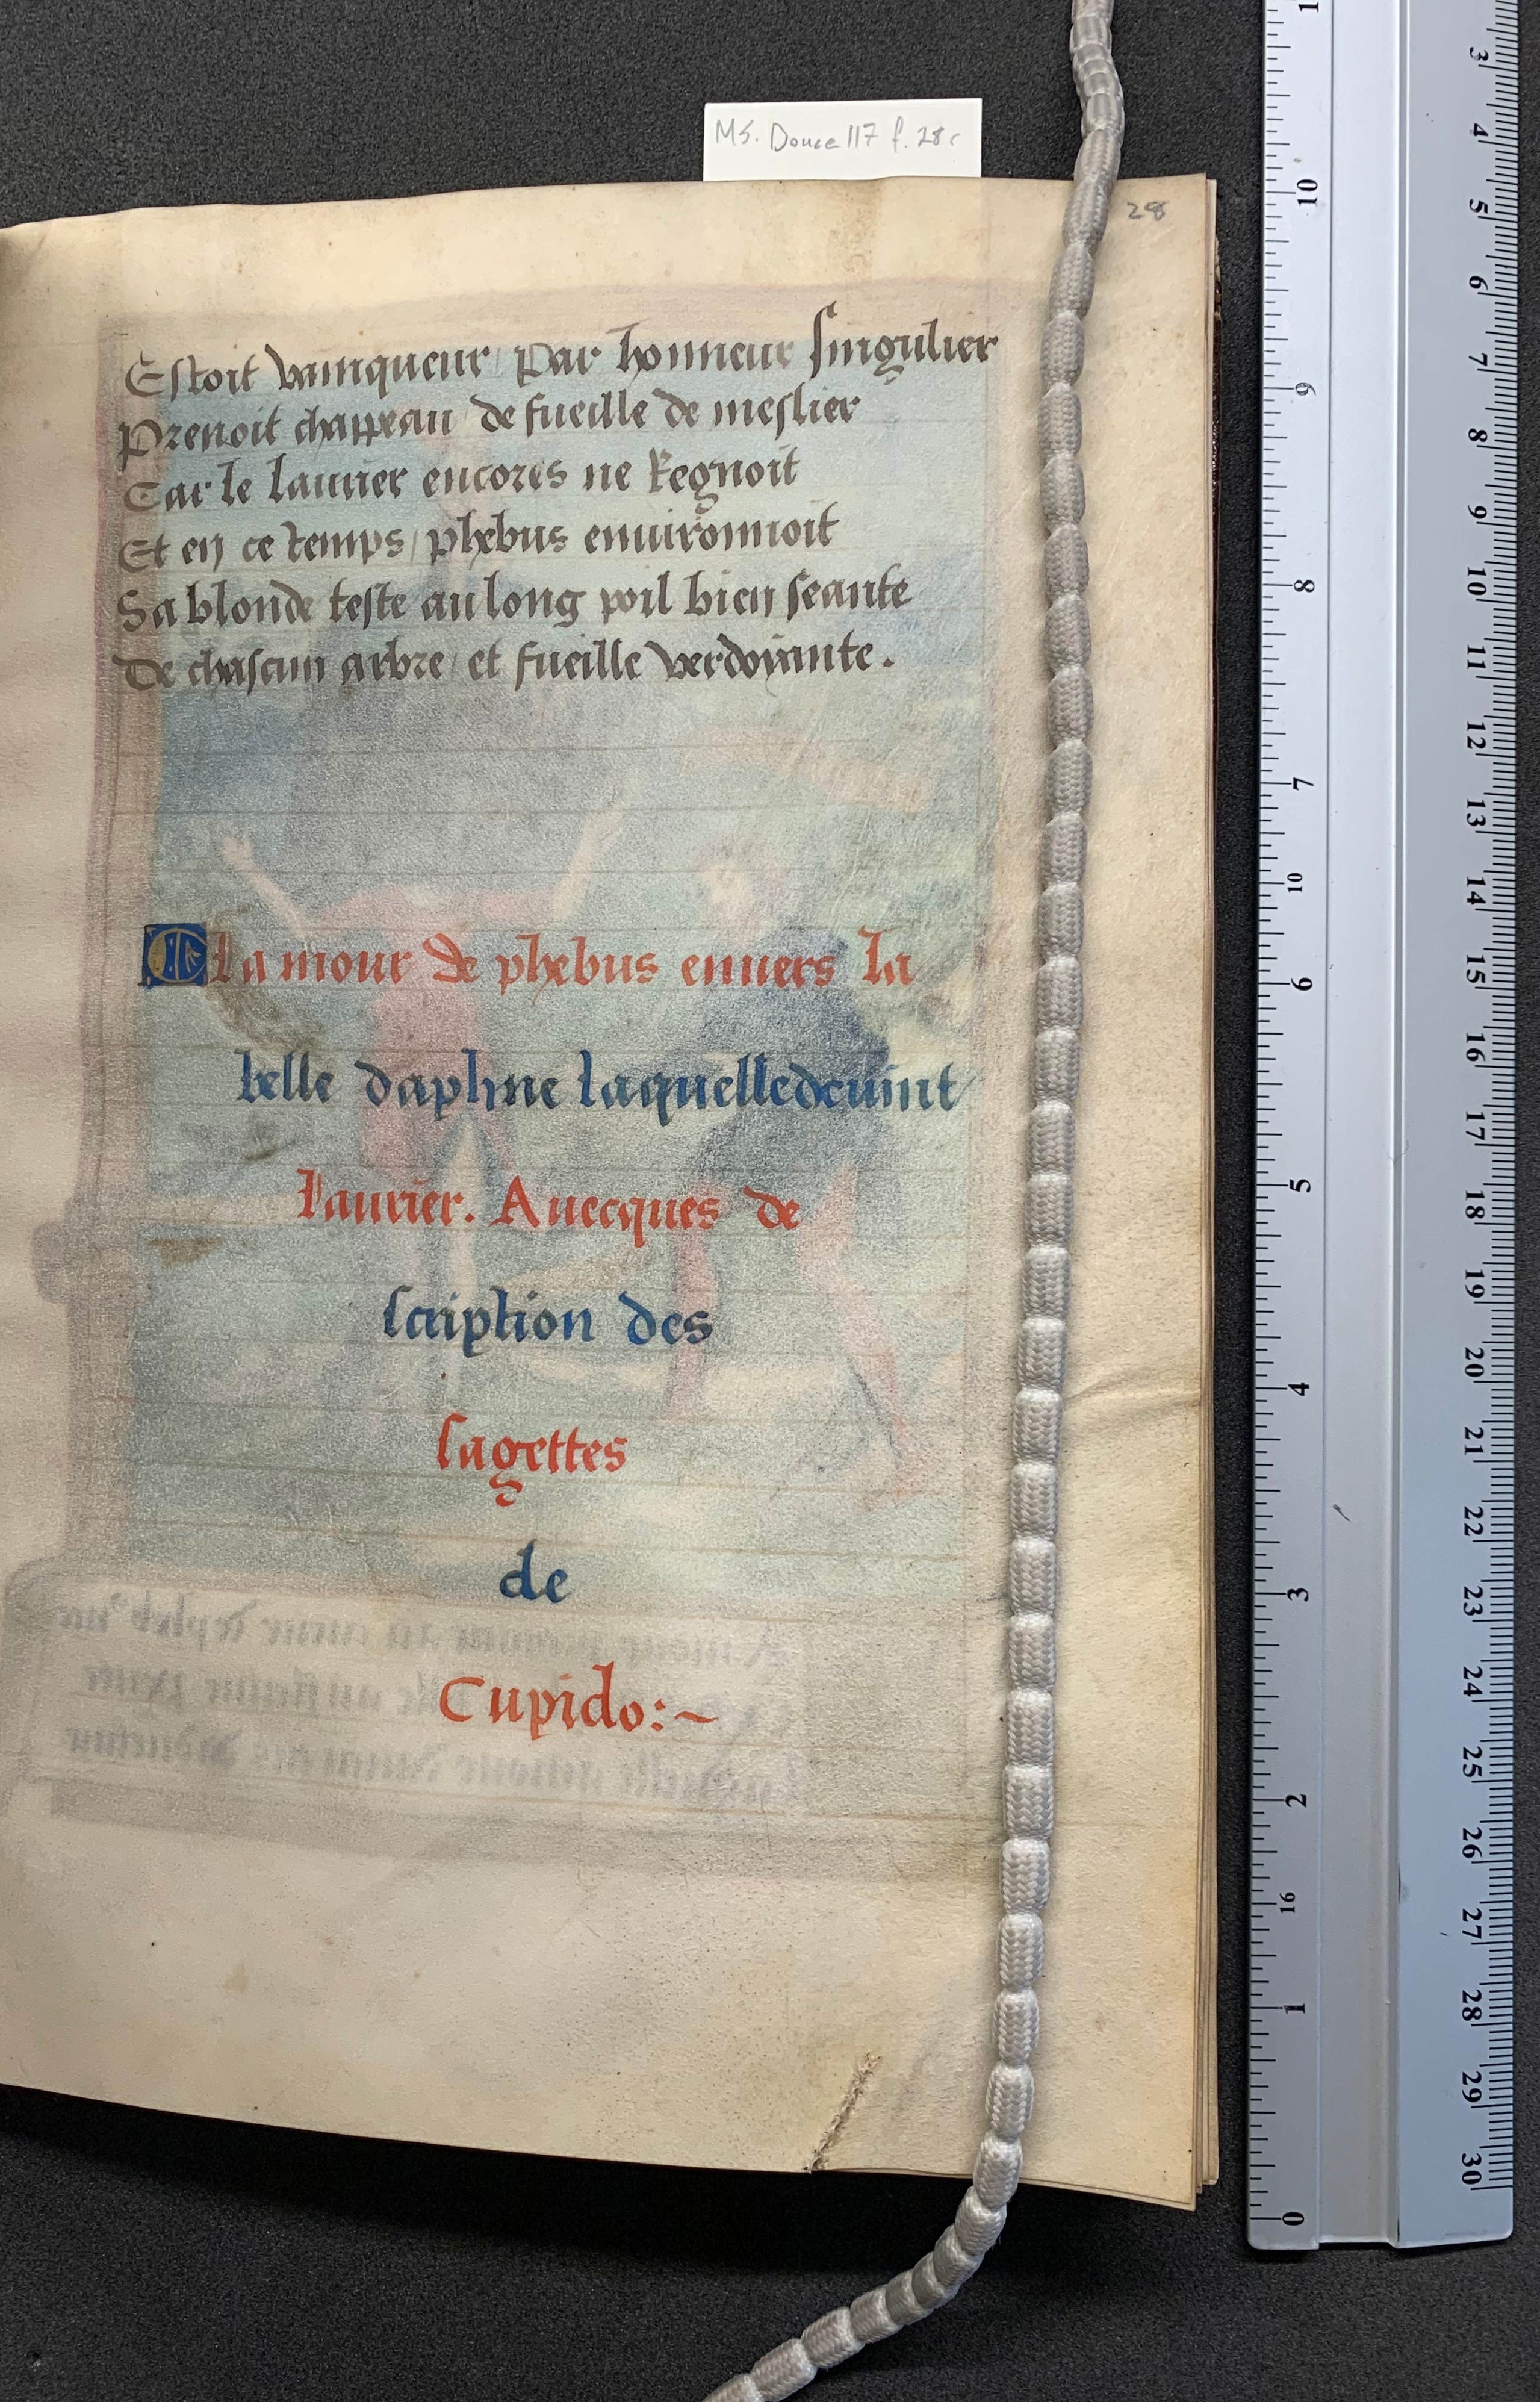 MS. Douce 117 f. 28r
28
Estoit vainqueur / par honneur singulier
Prenoit chappeau de fueille de meslier
Car le laurier encores ne Regnoit
Et en ce temps / phebus enuironnoit
Sa blonde teste au long poil bien seante
De chascun arbre / et fueille verdoyante.
La mour de phebus enuers la
belle daphne laquelle deuint
laurier. Auecques de
scription des
sagettes
de
Cupido:~
1
10
9
8
7
6
5
4
3
2
1
0
10
16
3
4
5
6
7
8
9
10
11
12
13
14
15
16
17
18
19
20
21
22
23
24
25
26
27
28
29
30